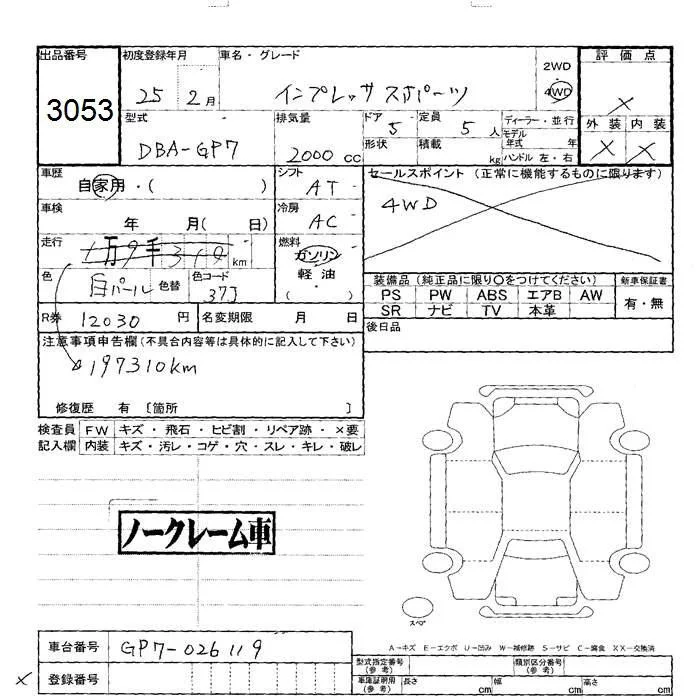 出品番号 初度登録年月 車名・グレード 2WD 評価点
3053 25 2月 インプレッサスポーツ 4WD ×
型式 排気量 ドア 5 定員 5人 ディーラー・並行 外装 内装
DBA-GP7 2000cc 形状 積載 kg モデル年式 年 × ×
ハンドル 左・右
車歴 自家用・( ) シフト AT セールスポイント(正常に機能するものに限ります)
車検 年 月( 日) 冷房 AC 4WD
走行 1万9千319km 燃料 ガソリン
軽油
( )
色 白パール 色替 色コード 37J
装備品(純正品に限り〇をつけてください) 新車保証書
PS PW ABS エアB AW 有・無
SR ナビ TV 本革
R券 12030円 名変期限 月 日 後日品
注意事項申告欄(不具合内容等は具体的に記入して下さい)
197310km
修復歴 有 [箇所 ]
検査員 FW キズ・飛石・ヒビ割・リペア跡・×要
記入欄 内装 キズ・汚レ・コゲ・穴・スレ・キレ・破レ
ノークレーム車
スペア
A-キズ E-エクボ U-凹み W-補修跡 S-サビ C-腐食 XX-交換済
車台番号 GP7-026119
型式指定番号(参考) 類別区分番号(参考)
× 登録番号
車庫証明用(参考) 長さ cm 幅 cm 高さ cm